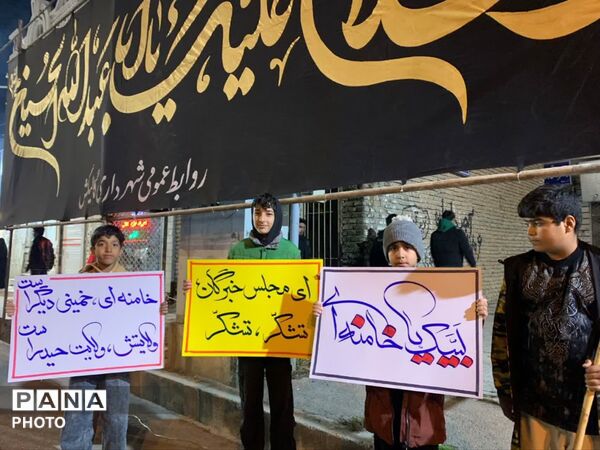 السلام علیک یا اباعبدالله الحسین
روابط عمومی شهرداری
خامنه ای، خمینی دیگر است
ولایتش، ولایت حیدر است
ای مجلس خبرگان
تشکر، تشکر
لبیک یا خامنه ای
PANA
PHOTO